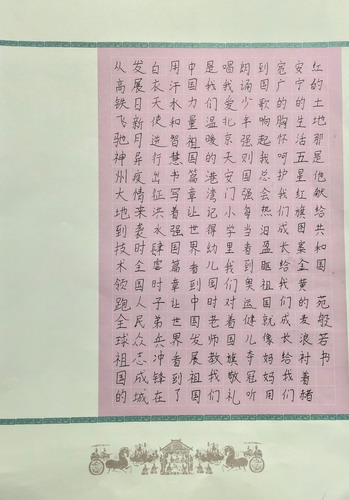 从高铁飞驰神州大地到技术领跑全球祖国的
发展日新月异疫情来袭时全国人民众志成城
白衣天使逆行出征洪水肆虐时子弟兵冲锋在
用汗水和智慧书写着强国篇章让世界看到了
中国力量祖国篇章让世界看到中国发展祖国
是我们温暖的港湾记得幼儿园时老师教我们
唱我爱北京天安门小学里我们对着国旗敬礼
朗诵少年强则国强每当看到奥运健儿夺冠听
到国歌响起我总会热泪盈眶祖国就像妈妈用
宽广的胸怀呵护我们成长给我们成长给我们
安宁的生活五星红旗图案金黄的麦浪衬着赭
红的土地那是他献给共和国 苑般若书